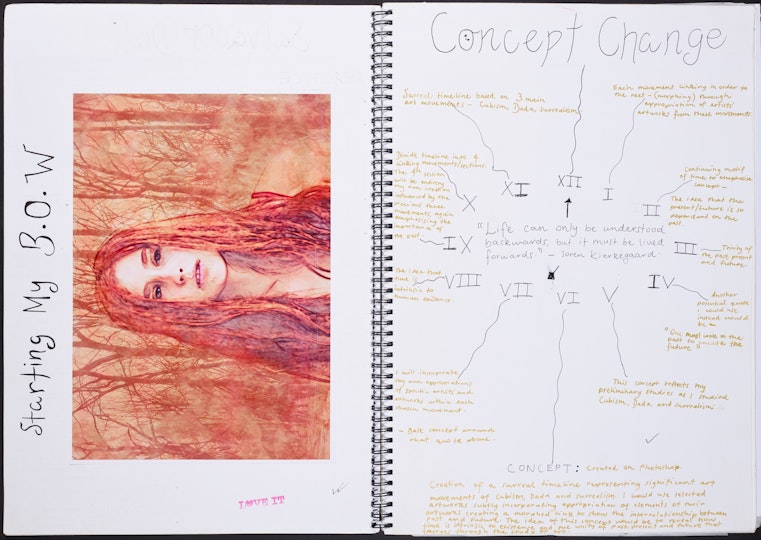 Starting My B.O.W
LOVE IT
Concept Change
Surreal timeline based on 3 main
art movements - Cubism, Dada, surrealism.
Each movement linking in order to
the next - (morphing) through
appropriation of artists
artworks from these movements.
Divide timeline into 4
linking movements/sections.
The 4th section
will be entirely
my own creation
influenced by the
previous three
movements, again
emphasising the
importance of
the past.
Continuing motif
of time to emphasise
concept -
The idea that the
present/future is so
dependant on the
past.
XII
XI
I
X
II
IX
III
VIII
IV
VII
VI
V
"Life can only be understood
backwards, but it must be lived
forwards." - Soren Kierkegaard.
Trinity of
the past, present
and future.
The idea that
time is
intrinsic to
human existence.
Another
potential quote
I could use
instead would
be -
"One must look to the
past to
future."
I will incorporate
my own appropriations
of specific artists and
artworks within each
chosen movement.
This concept reflects my
preliminary studies as I studied
Cubism, Dada, and surrealism.
- Base concept around
what quote above.
CONCEPT: Created on Photoshop
Creation of a surreal timeline representing significant art
movements of Cubism, Dada and surrealism. I would use selected
artworks subtly incorporating appropriation of elements of their
artworks creating a morphed link to show the interrelationship between
past and future. The idea of this concept would be to reveal how
time is intrinsic to existence and the units of past present and future that
through the study of art.